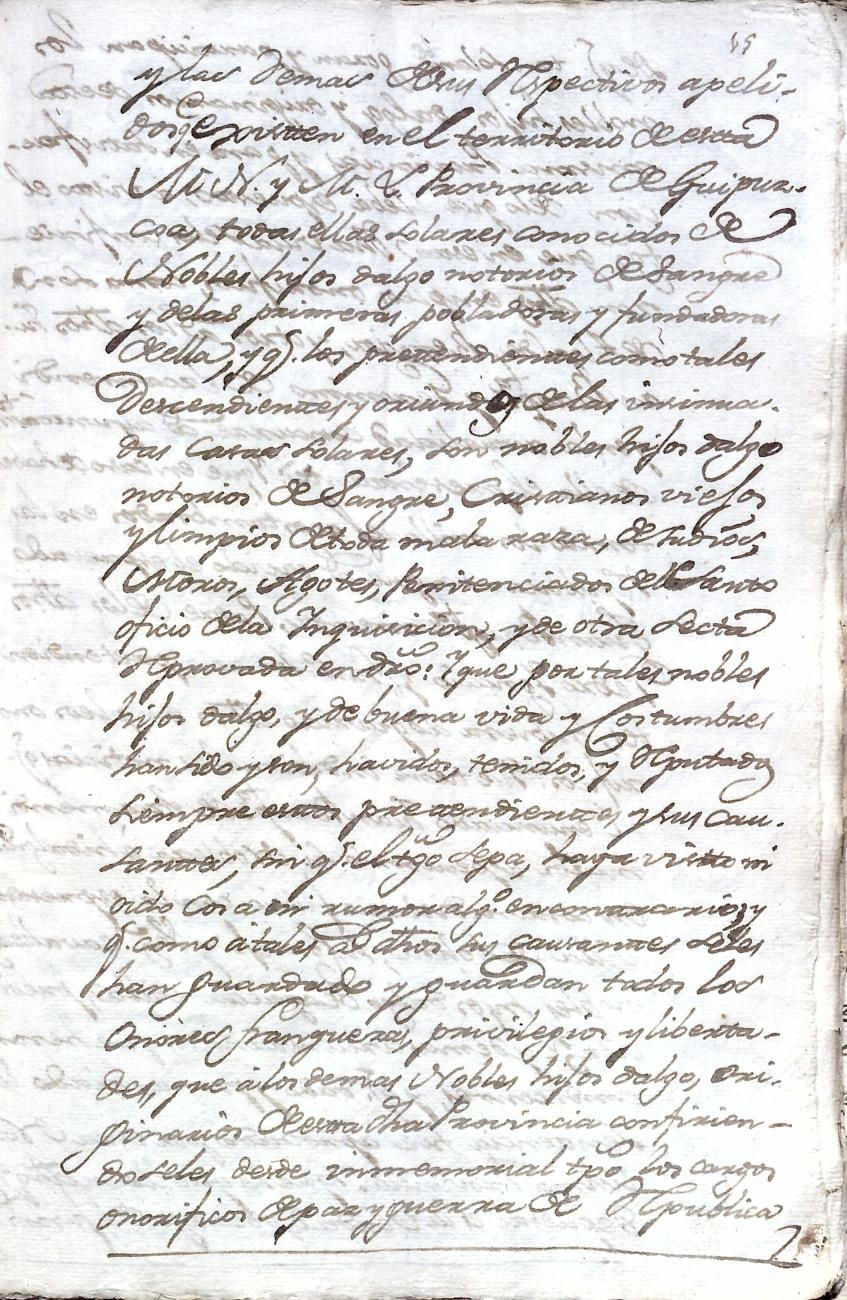 45
y las demas de sus Respectivos apeli-
dos qe existen en el territorio de esta
M. N. y M. L. Provincia de Guipuz-
coa, todas ellas solares conocidos de
Nobles hijos dalgo notorios de Sangre
y delas primeras pobladoras y fundadoras
de ella, y q.e los pretendientes como tales
Descendientes y oriundos de las insinua-
das Casas solares, son nobles hijos dalgo
notorios de Sangre, Cristianos viejos,
y limpios de toda mala raza, de Judios,
Moros, Agotes, Penitenciados del Santo
oficio dela Inquisicion, y de otra secta
Reprovada en dro: Y que por tales nobles
hijos dalgo, y de buena vida y Costumbres
han sido y son, havidos, tenidos, y Reputados
siempre estos pretendientes y sus Cau-
santes, sin q.e el tgo sepa, haya visto ni
oido Cosa ni rumor alg.o en contrario, y
q.e como á tales á dhos sus causantes seles
han guardado y guardan todos los
Onores franquezas, privilegios y liberta-
des, que á los demas Nobles hijos dalgo, ori-
ginarios de esta dha Provincia confirien-
doseles desde inmemorial tpo los cargos
onorificos de paz y guerra de Republica